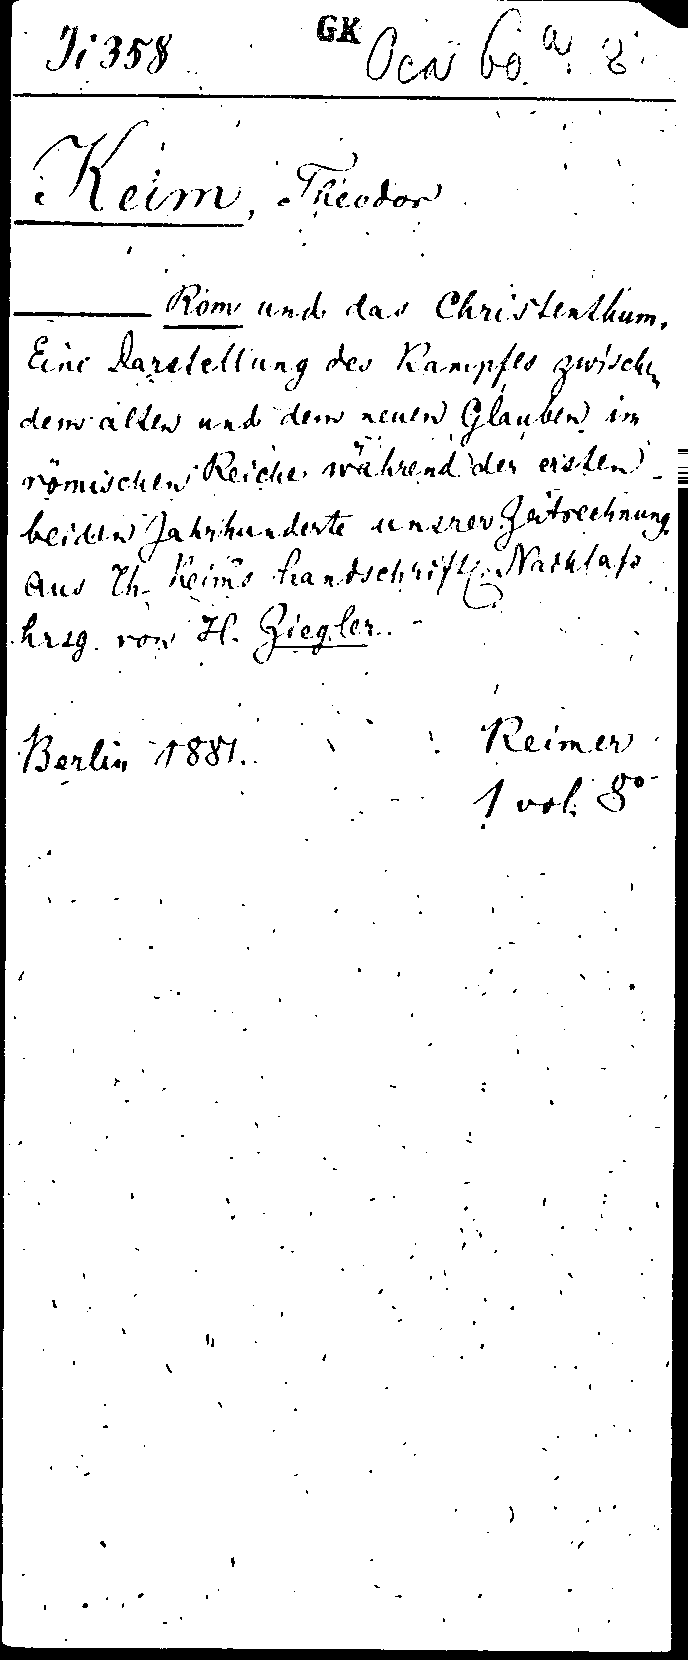 Ji 358 GK Oca 60 a. 8.
Keim, Theodor
——— Rom und das Christenthum.
Eine Darstellung des Kampfes zwischen
dem alten und dem neuen Glauben im
römischen Reiche während der ersten
beiden Jahrhunderte unsrer Zeitrechnung.
Aus Th. Keim's handschriftl. Nachlaß
hrsg. von H. Ziegler.
Berlin 1881. Reimer
1 vol. 8°